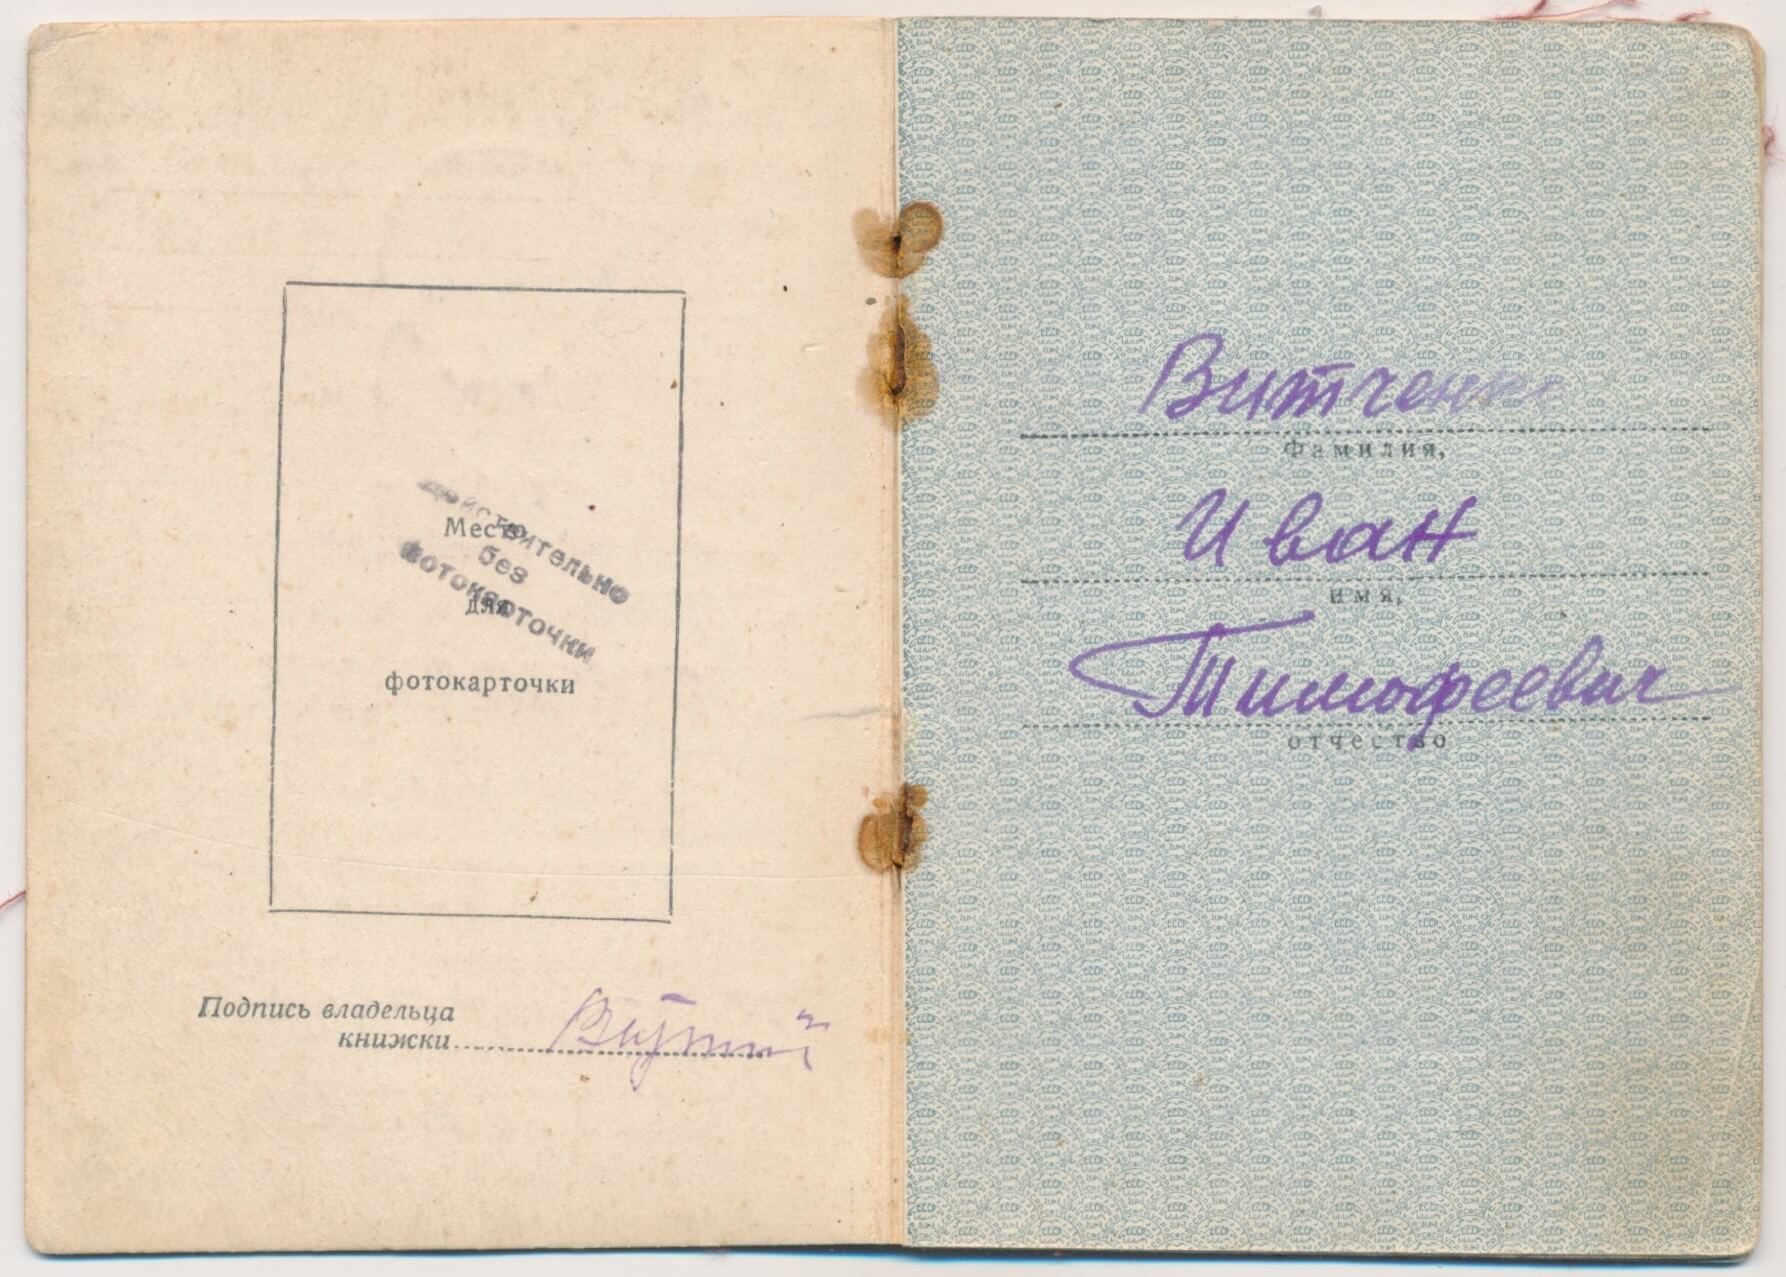 Место
для
фотокарточки
Действительно
без
фотокарточки
Подпись владельца
книжки
Витченко
Фамилия,
Иван
имя,
Тимофеевич
отчество